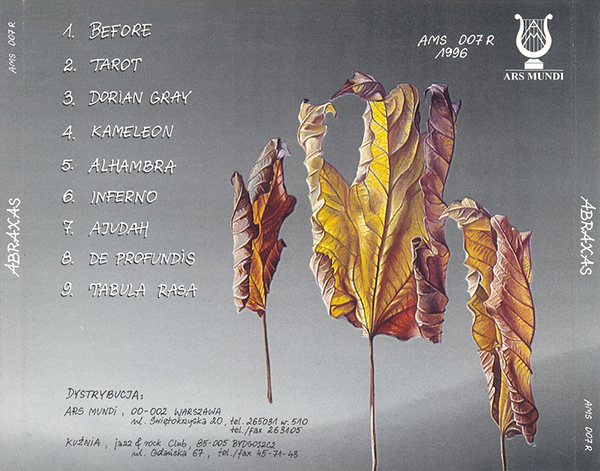 AMS 007R
ABRAXAS
1. BEFORE
2. TAROT
3. DORIAN GRAY
4. KAMELEON
5. ALHAMBRA
6. INFERNO
7. AJUDAH
8. DE PROFUNDIS
9. TABULA RASA
AMS 007R
1996
ARS MUNDI
DYSTRYBUCJA:
ARS MUNDI, 00-002 WARSZAWA
ul. Świętokrzyska 20, tel. 265031 w. 510
tel./fax 263105
KUŹNIA, jazz & rock Club, 85-005 BYDGOSZCZ
ul. Gdańska 67, tel./fax 45-71-43
ABRAXAS
AMS 007R